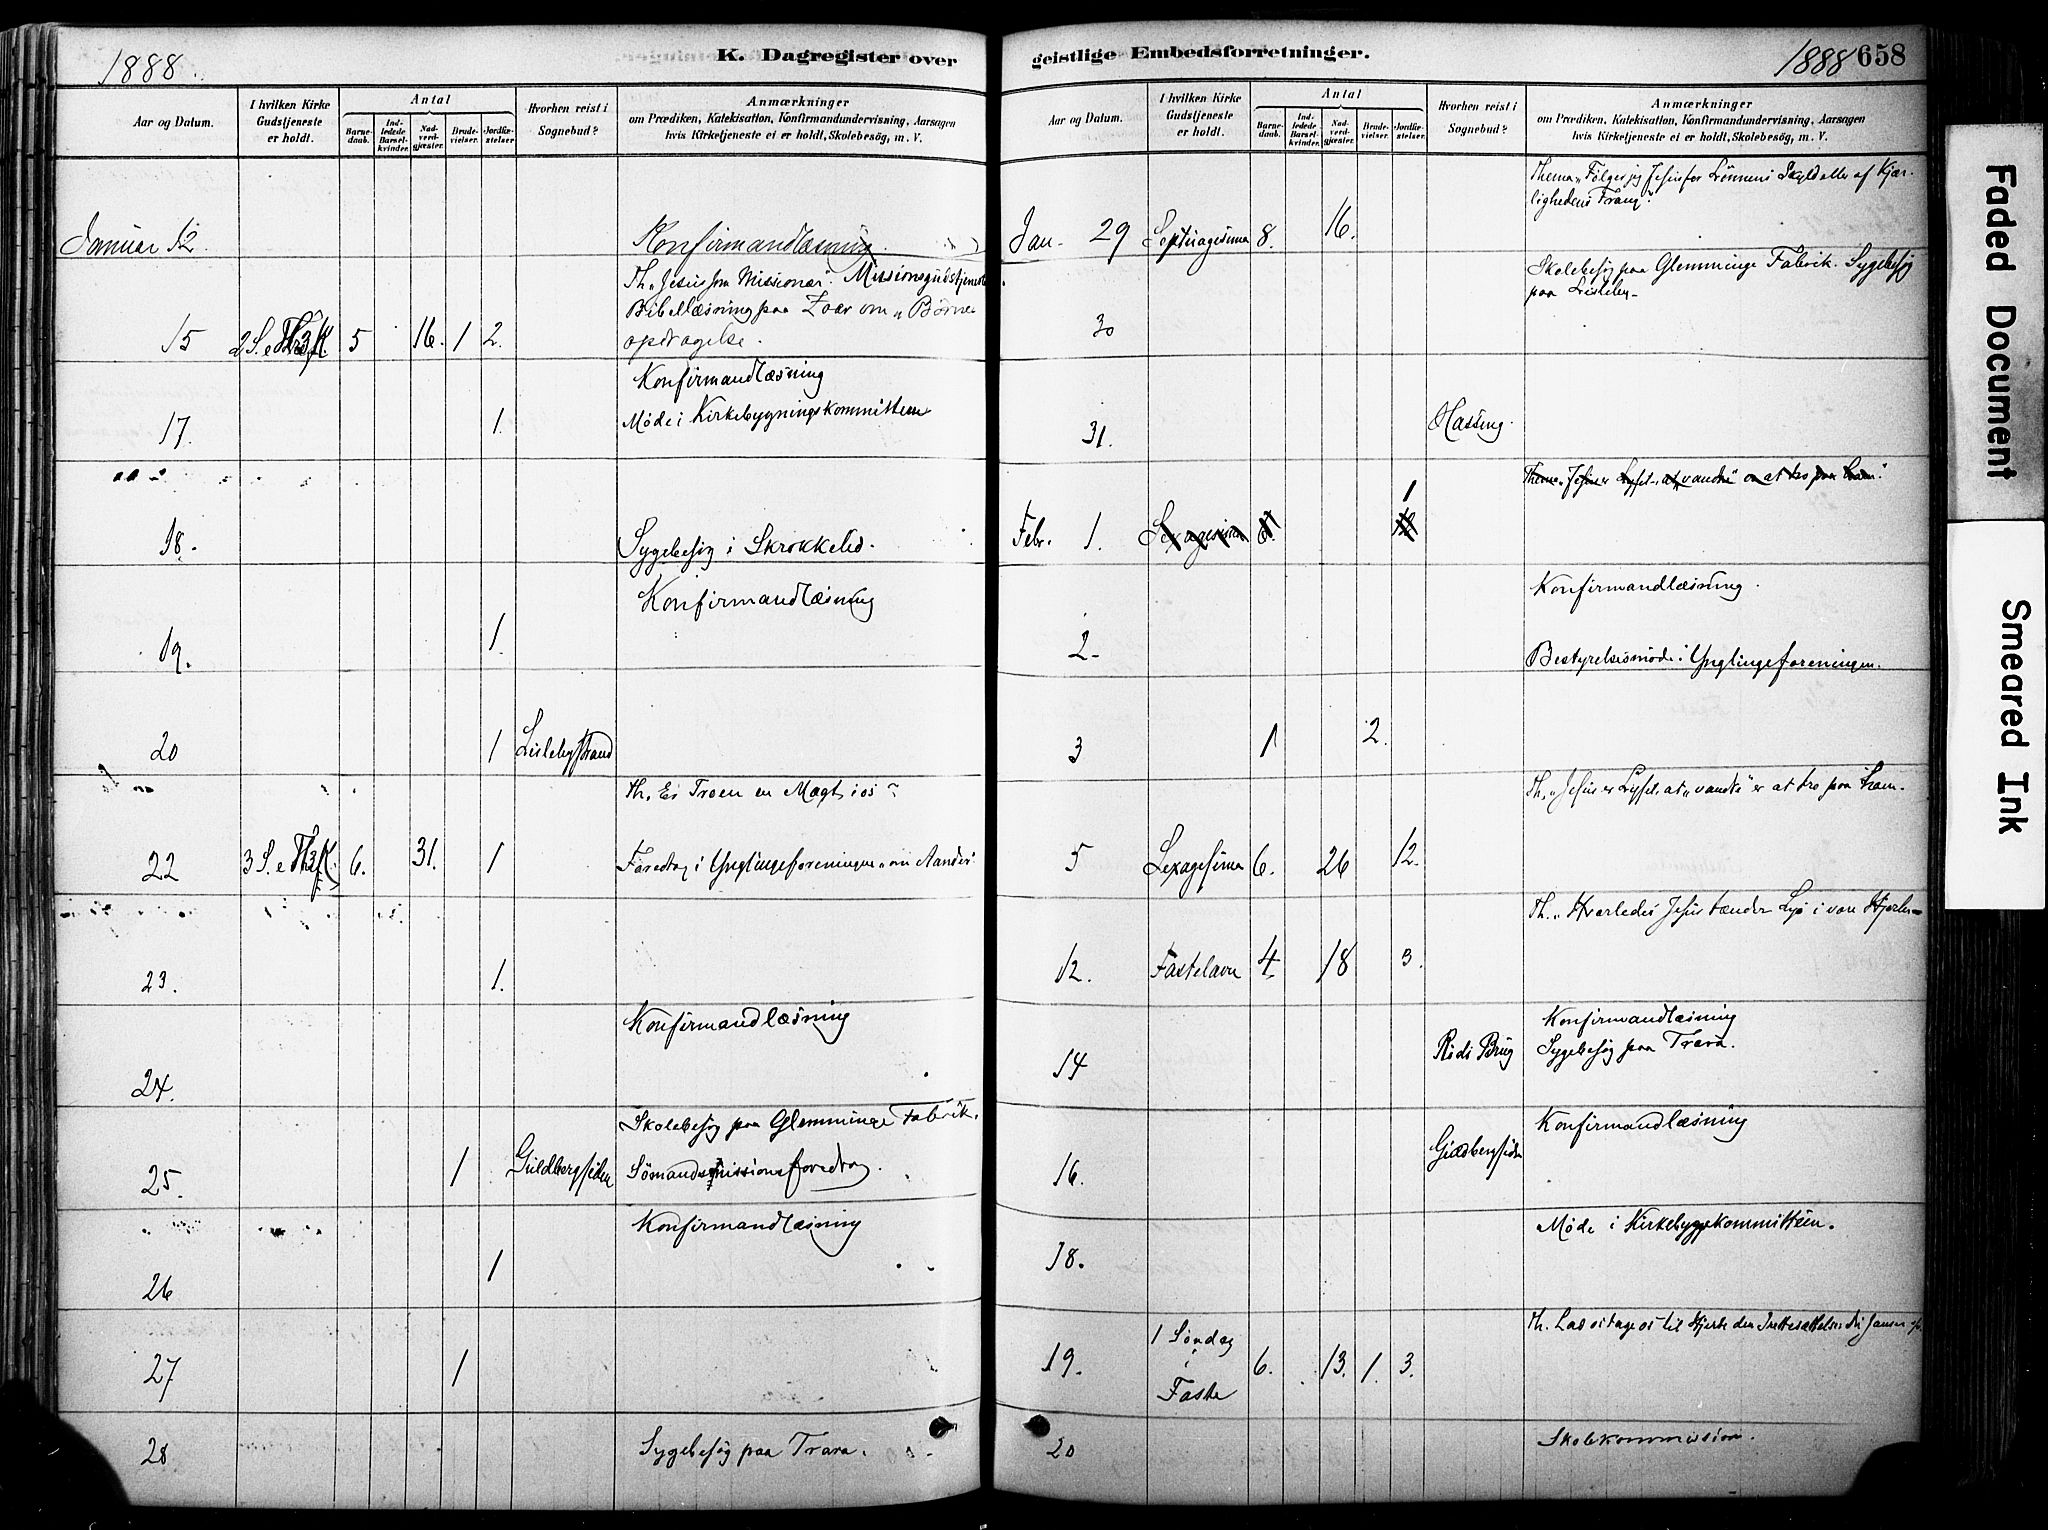 1888.
K. Dagregister over
Aar og Datum.
I hvilken Kirke Gudstjeneste er holdt.
Antal
Barnedaab.
Indledede Barselkvinder.
Nadverdgjæster.
Brudevielser.
Jordfæstelser
Hvorhen reist i Sognebud?
Anmærkninger
om Prædiken, Katekisation, Konfirmandundervisning, Aarsagen
hvis Kirketjeneste ei er holdt, Skolebesøg, m. V.
Januar 12.
Konfirmandlæsning
Th. "Jesus som Missionær". Missionsgudstjeneste.
Bibellæsning paa Zoar om "Børne
opdragelse.
15 2 S. e. H3K. 5 16. 1 2.
Konfirmandlæsning
Møde i Kirkebygningskommitteen
17. 1.
18. Sygebesøg i Skrokkelid.
Konfirmandlæsning
19. 1.
20 1 Lislebystrand
Th. Er Troen en Magt i os?
22 3 S. e. H3K. 6. 31. 1 Foredrag i Ynglingeforeningen "om Aander"
23. 1.
Konfirmandlæsning
24.
Skolebesøg paa Glemminge Fabrik.
25. 1 Guldbergsiden Sømandsmissionsforedrag.
Konfirmandlæsning
26 1
27 1
28 Sygebesøg paa Trara.
geistlige Embedsforretninger.
1888 658
Aar og Datum.
I hvilken Kirke Gudstjeneste er holdt.
Antal
Barnedaab.
Indledede Barselkvinder.
Nadverdgjæster.
Brudevielser.
Jordfæstelser.
Hvorhen reist i Sognebud?
Anmærkninger
om Prædiken, Katekisation, Konfirmandundervisning, Aarsagen
hvis Kirketjeneste ei er holdt, Skolebesøg, m. V.
Thema "Følger jeg Jesus for Lønnens Skyld eller af Kjær-
lighedens Trang".
Jan. 29 Septuagesima 8. 16.
Skolebesøg paa Glemminge Fabrik. Sygebesøg
paa Lisleby.
30
31. Hassing.
Thema "Jesus er Lyset, at "vandre" er at tro paa ham".
Febr. 1. Sexagesima 6. 1
Konfirmandlæsning.
2. Bestyrelsesmøde i Ynglingeforeningen.
3 1 2.
Th. "Jesus er Lyset, at "vandre" er at tro paa ham.
5 Sexagesima 6. 26 12.
Th. "Hvorledes Jesus tænder Lys i vore Hjerter
12. Fastelavn 4. 18 3.
Konfirmandlæsning
14 Rods Brug Sygebesøg paa Trara.
Konfirmandlæsning
16. Guldbergsiden
Møde i Kirkebyggekommitteen.
18.
Th. Lad os tage os til Hjerte den Irettesættelse
19. 1 Søndag i Faste 6. 13. 1. 3.
20 Skolekommission.
Faded Document
Smeared Ink